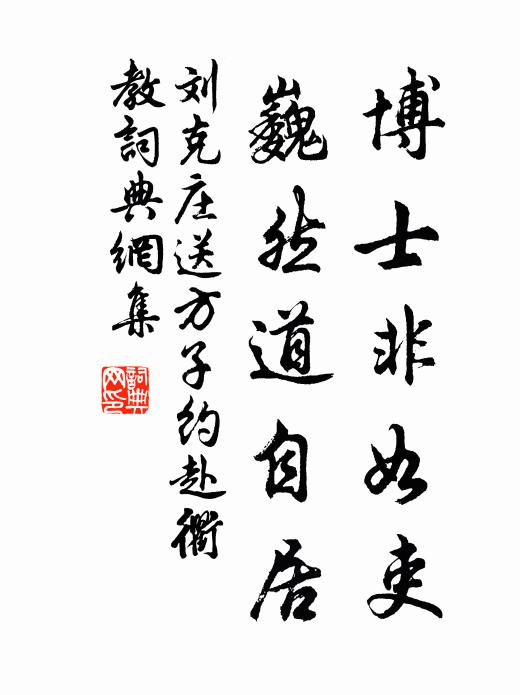 博士非如吏
巍然道自居
刘克庄送方子约赴衢
教詞典網集
詞典网印